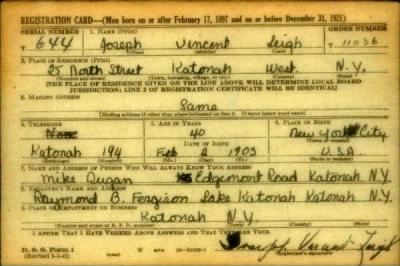 REGISTRATION CARD—(Men born on or after February 17, 1897 and on or before December 31, 1921)
SERIAL NUMBER 1. NAME (Print) ORDER NUMBER
T 644 Joseph Vincent Leigh T 11036
(First) (Middle) (Last)
2. PLACE OF RESIDENCE (Print)
25 North Street Katonah West. N.Y.
(Number and street) (Town, township, village, or city) (County) (State)
[THE PLACE OF RESIDENCE GIVEN ON THE LINE ABOVE WILL DETERMINE LOCAL BOARD
JURISDICTION; LINE 2 OF REGISTRATION CERTIFICATE WILL BE IDENTICAL]
3. MAILING ADDRESS
Same
(Mailing address if other than place indicated on line 2. If same insert word same)
4. TELEPHONE 5. AGE IN YEARS 6. PLACE OF BIRTH
None 40 New York City
DATE OF BIRTH
Katonah 194 Feb 2 1903 U.S.A
7. NAME AND ADDRESS OF PERSON WHO WILL ALWAYS KNOW YOUR ADDRESS
Mike Dugan Edgemont Road Katonah N.Y.
8. EMPLOYER'S NAME AND ADDRESS
Raymond B. Fergison Lake Katonah Katonah N.Y.
9. PLACE OF EMPLOYMENT OR BUSINESS
Katonah N.Y.
I AFFIRM THAT I HAVE VERIFIED ABOVE ANSWERS AND THAT THEY ARE TRUE.
D. S. S. Form 1
Joseph Vincent Leigh